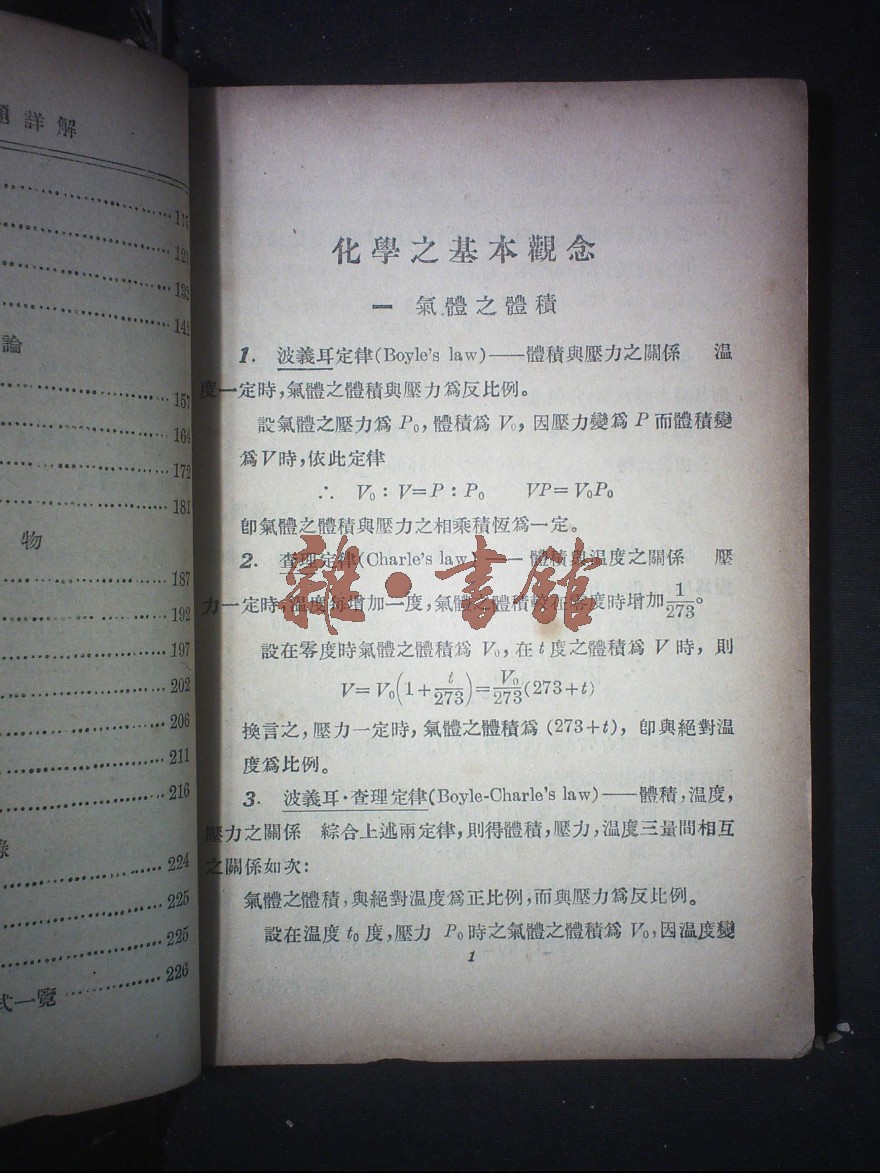 題詳解
115
121
133
142
論
157
164
172
181
物
187
192
197
202
206
211
216
錄
224
225
225
式一覽 226
化學之基本觀念
一 氣體之體積
1. 波義耳定律(Boyle's law)——體積與壓力之關係 溫
度一定時,氣體之體積與壓力爲反比例。
設氣體之壓力爲 P₀,體積爲 V₀,因壓力變爲 P 而體積變
爲V時,依此定律
∴ V₀ : V=P : P₀ VP=V₀P₀
卽氣體之體積與壓力之相乘積恆爲一定。
2. 查理定律(Charle's law)——體積與溫度之關係 壓
力一定時,溫度每增加一度,氣體之體積較在零度時增加1/273。
設在零度時氣體之體積爲 V₀,在 t 度之體積爲 V 時,則
V=V₀(1+t/273)=V₀/273(273+t)
換言之,壓力一定時,氣體之體積爲 (273+t),卽與絕對溫
度爲比例。
3. 波義耳·查理定律(Boyle-Charle's law)——體積,溫度,
壓力之關係 綜合上述兩定律,則得體積,壓力,溫度三量間相互
之關係如次:
氣體之體積,與絕對溫度爲正比例,而與壓力爲反比例。
設在溫度 t₀ 度,壓力 P₀時之氣體之體積爲 V₀,因溫度變
1
雜·書館